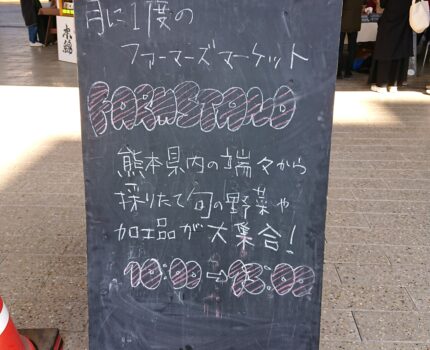 月に1度の
ファーマーズマーケット
FARmSTAND
熊本県内の端々から
採りたて旬の野菜や
加工品が大集合!
10:00→15:00